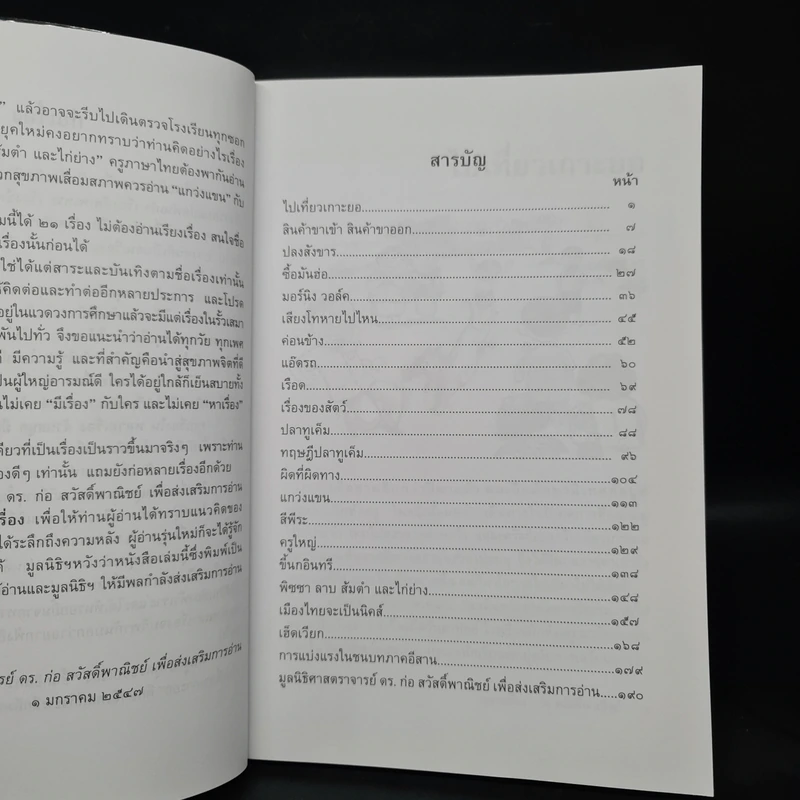 ” แล้วอาจจะรีบไปเดินตรวจโรงเรียนทุกซอก
ยุคใหม่คงอยากทราบว่าท่านคิดอย่างไรเรื่อง
ส้มตำ และไก่ย่าง” ครูภาษาไทยต้องพากันอ่าน
สุขภาพเสื่อมสภาพควรอ่าน “แกว่งแขน” กับ
มนี้ได้ ๒๑ เรื่อง ไม่ต้องอ่านเรียงเรื่อง สนใจชื่อ
เรื่องนั้นก่อนได้
ใช่ได้แต่สาระและบันเทิงตามชื่อเรื่องเท่านั้น
ห้คิดต่อและทำต่ออีกหลายประการ และโปรด
อยู่ในแวดวงการศึกษาแล้วจะมีแต่เรื่องในรั้วเสมา
พันไปทั่ว จึงขอแนะนำว่าอ่านได้ทุกวัย ทุกเพศ
ดี มีความรู้ และที่สำคัญคือนำสู่สุขภาพจิตที่ดี
ป็นผู้ใหญ่อารมณ์ดี ใครได้อยู่ใกล้ก็เย็นสบายทั้ง
นไม่เคย “มีเรื่อง” กับใคร และไม่เคย “หาเรื่อง”
ดียวที่เป็นเรื่องเป็นราวขึ้นมาจริงๆ เพราะท่าน
องดีๆ เท่านั้น แถมยังก่อหลายเรื่องอีกด้วย
ดร. ก่อ สวัสดิ์พาณิชย์ เพื่อส่งเสริมการอ่าน
รื่อง เพื่อให้ท่านผู้อ่านได้ทราบแนวคิดของ
ได้ระลึกถึงความหลัง ผู้อ่านรุ่นใหม่ก็จะได้รู้จัก
ด้ มูลนิธิฯหวังว่าหนังสือเล่มนี้ซึ่งพิมพ์เป็น
อ่านและมูลนิธิฯ ให้มีพลกำลังส่งเสริมการอ่าน
รย์ ดร. ก่อ สวัสดิ์พาณิชย์ เพื่อส่งเสริมการอ่าน
๑ มกราคม ๒๕๔๗
สารบัญ
หน้า
ไปเที่ยวเกาะยอ ๑
สินค้าขาเข้า สินค้าขาออก ๗
ปลงสังขาร ๑๘
ซื้อมันฮ่อ ๒๗
มอร์นิง วอล์ค ๓๖
เสียงโทหายไปไหน ๔๕
ค่อนข้าง ๕๒
แอ๊ดรถ ๖๐
เรือด ๖๙
เรื่องของสัตว์ ๗๘
ปลาทูเค็ม ๘๘
ทฤษฎีปลาทูเค็ม ๙๖
ผิดที่ผิดทาง ๑๐๔
แกว่งแขน ๑๑๓
สีพีระ ๑๒๒
ครูใหญ่ ๑๒๙
ขี้นกอินทรี ๑๓๘
พิซซา ลาบ ส้มตำ และไก่ย่าง ๑๔๘
เมืองไทยจะเป็นนิคส์ ๑๕๗
เฮ็ดเวียก ๑๖๘
การแบ่งแรงในชนบทภาคอีสาน ๑๗๙
มูลนิธิศาสตราจารย์ ดร. ก่อ สวัสดิ์พาณิชย์ เพื่อส่งเสริมการอ่าน ๑๙๐